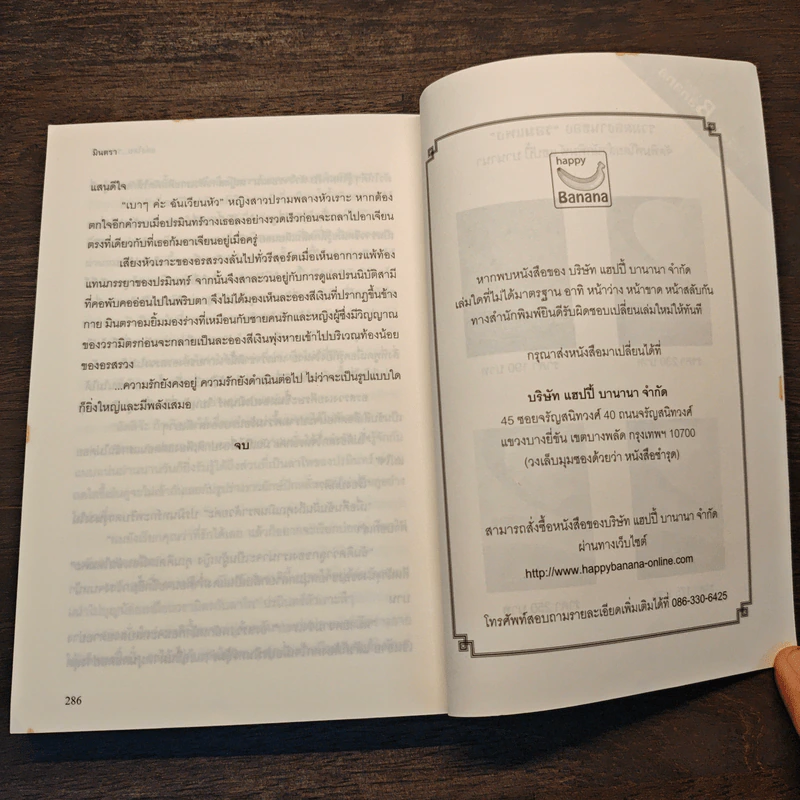 มินตรา
แสนดีใจ
"เบาๆ ค่ะ ฉันเวียนหัว" หญิงสาวปรามพลางหัวเราะ หากต้อง
ตกใจอีกคำรบเมื่อปรมินทร์วางเธอลงอย่างรวดเร็วก่อนจะถลาไปอาเจียน
ตรงที่เดียวกับที่เธอก้มอาเจียนอยู่เมื่อครู่
เสียงหัวเราะของอรสรวงลั่นไปทั่วรีสอร์ตเมื่อเห็นอาการแพ้ท้อง
แทนภรรยาของปรมินทร์ จากนั้นจึงสาละวนอยู่กับการดูแลปรนนิบัติสามี
ที่คอพับคออ่อนไปในพริบตา จึงไม่ได้มองเห็นละอองสีเงินที่ปรากฏขึ้นข้าง
กาย มินตราอมยิ้มมองร่างที่เหมือนกับชายคนรักและหญิงผู้ซึ่งมีวิญญาณ
ของวรามิตรก่อนจะกลายเป็นละอองสีเงินพุ่งหายเข้าไปบริเวณท้องน้อย
ของอรสรวง
...ความรักยังคงอยู่ ความรักยังดำเนินต่อไป ไม่ว่าจะเป็นรูปแบบใด
ก็ยิ่งใหญ่และมีพลังเสมอ
จบ
286
happy
Banana
หากพบหนังสือของ บริษัท แฮปปี้ บานานา จำกัด
เล่มใดที่ไม่ได้มาตรฐาน อาทิ หน้าว่าง หน้าขาด หน้าสลับกัน
ทางสำนักพิมพ์ยินดีรับผิดชอบเปลี่ยนเล่มใหม่ให้ทันที
กรุณาส่งหนังสือมาเปลี่ยนได้ที่
บริษัท แฮปปี้ บานานา จำกัด
45 ซอยจรัญสนิทวงศ์ 40 ถนนจรัญสนิทวงศ์
แขวงบางยี่ขัน เขตบางพลัด กรุงเทพฯ 10700
(วงเล็บมุมซองด้วยว่า หนังสือชำรุด)
สามารถสั่งซื้อหนังสือของบริษัท แฮปปี้ บานานา จำกัด
ผ่านทางเว็บไซต์
http://www.happybanana-online.com
โทรศัพท์สอบถามรายละเอียดเพิ่มเติมได้ที่ 086-330-6425